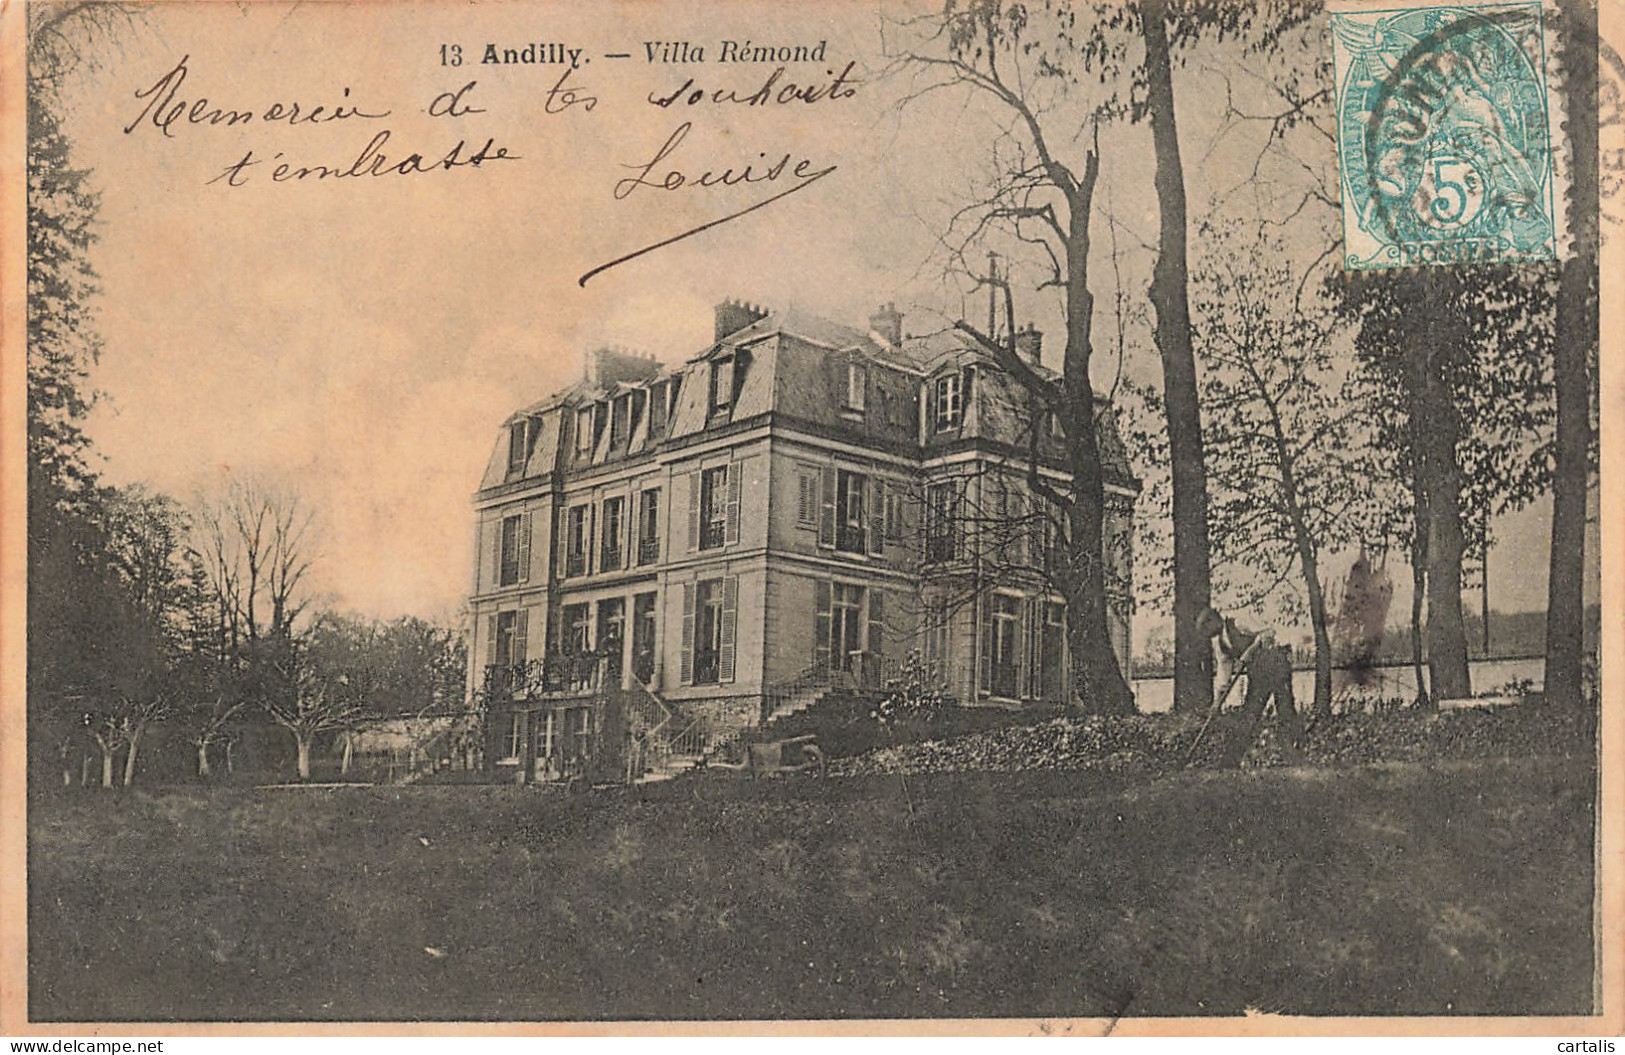 13 Andilly. — Villa Rémond
Remercie de tes souhaits
t'embrasse Louise
5c
POSTES
Banque d'images pour collectionneurs www.delcampe.net
cartalis